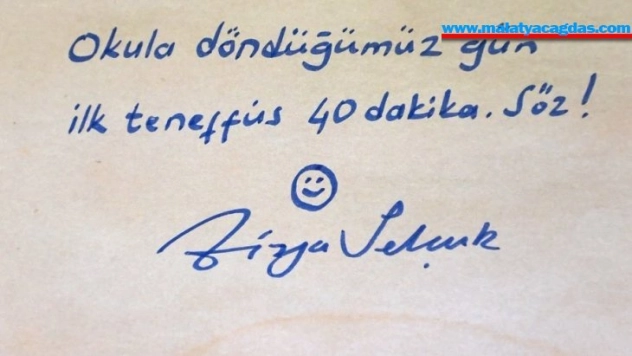 www.malatyacagdas.com
Okula döndüğümüz gün
ilk teneffüs 40 dakika. Söz!
Ziya Selçuk